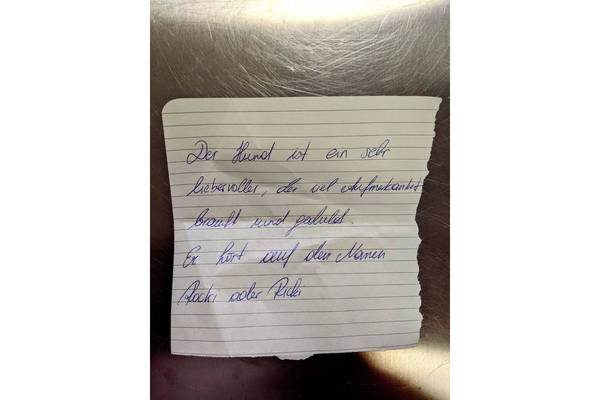 Der Hund ist ein sehr
liebervoller, der viel Aufmerksamkeit
brauft und geduldet.
Er hört auf den Namen
Rocki oder Ricki